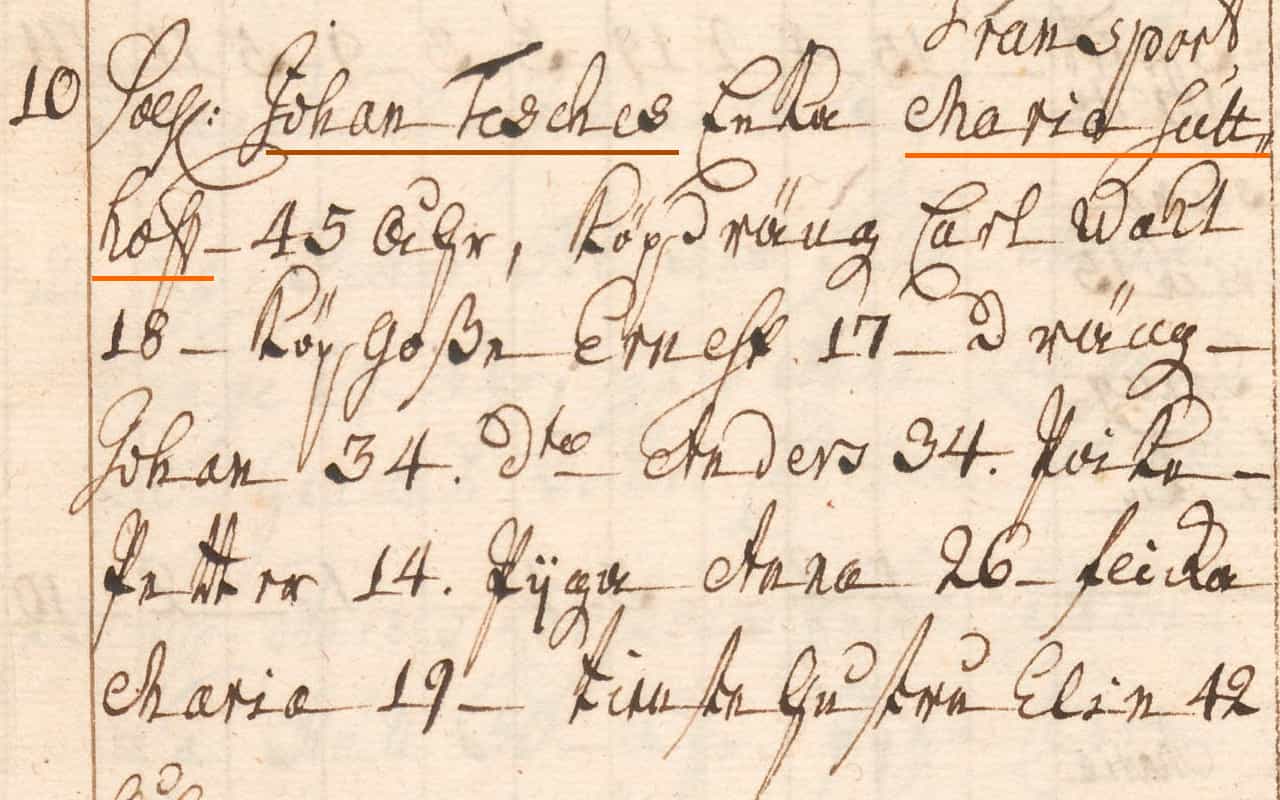 Transport
10 Sal: Johan Tesches Enka Maria Sutt„
hoff – 45 åhr, Köpdräng Carl Wahl
18 – Köpgoße Ernest 17 – Dräng –
Johan 34. Dto Anders 34. Poike –
Petter 14. Pijga Anna 26 – Peicka
Maria 19 – Tienste Hustru Elin 42